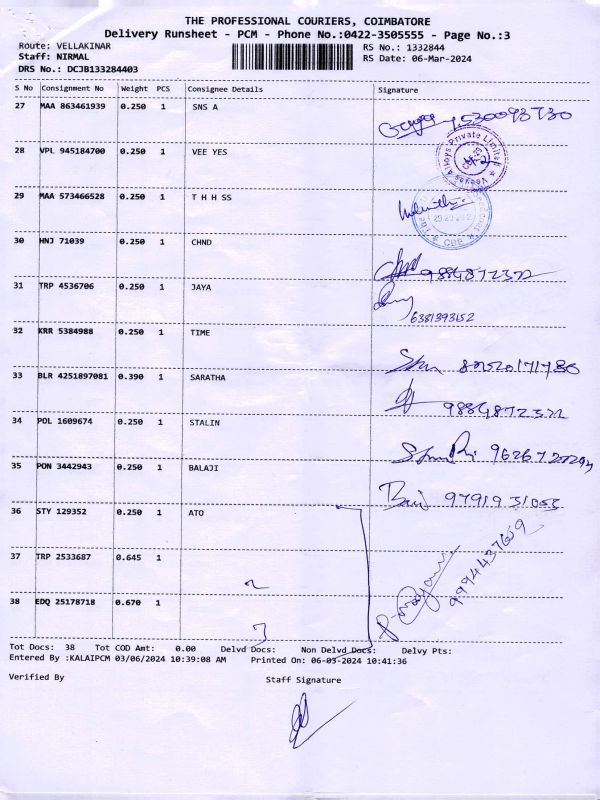 THE PROFESSIONAL COURIERS, COIMBATORE
Delivery Runsheet - PCM - Phone No.:0422-3505555 - Page No.:3
Route: VELLAKINAR RS No.: 1332844
Staff: NIRMAL RS Date: 06-Mar-2024
DRS No.: DCJB133284403
S No Consignment No Weight PCS Consignee Details Signature
27 MAA 863461939 0.250 1 SNS A
28 VPL 945184700 0.250 1 VEE YES
29 MAA 573466528 0.250 1 T H H SS
30 HNJ 71039 0.250 1 CHND
31 TRP 4536706 0.250 1 JAYA
6381393152
32 KRR 5384988 0.250 1 TIME
33 BLR 4251897081 0.390 1 SARATHA
34 POL 1609674 0.250 1 STALIN
35 PON 3442943 0.250 1 BALAJI
36 STY 129352 0.250 1 ATO
37 TRP 2533687 0.645 1
38 EDQ 25178718 0.670 1
9994437609
Tot Docs: 38 Tot COD Amt: 0.00 Delvd Docs: Non Delvd Docs: Delvy Pts:
Entered By :KALAIPCM 03/06/2024 10:39:08 AM Printed On: 06-03-2024 10:41:36
Verified By Staff Signature